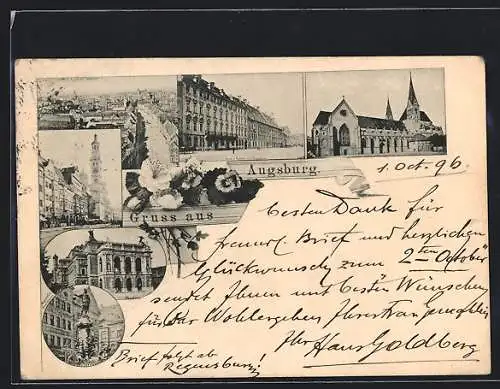 Gruss aus
Augsburg.
1. Oct. 96
besten Dank für
freundl. Brief und herzlichen
Glückwunsch zum 2ten October
sendet Ihnen mit besten Wünschen
für das Wohlergehen Ihrer Frau Gemahlin
Ihr Hans Goldberg
Brief folgt ab
Regensburg!